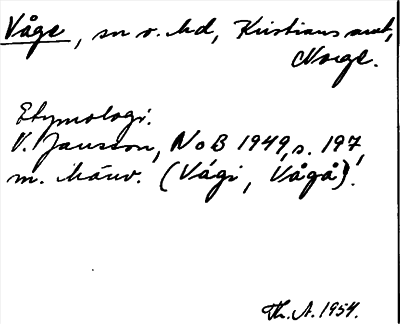 Våge, sn o. hd, Kristians amt,
Norge.
Etymologi.
V. Jansson, NoB 1949, s. 197,
m. hänv. (Vági, Vågå).
Th. A. 1954.